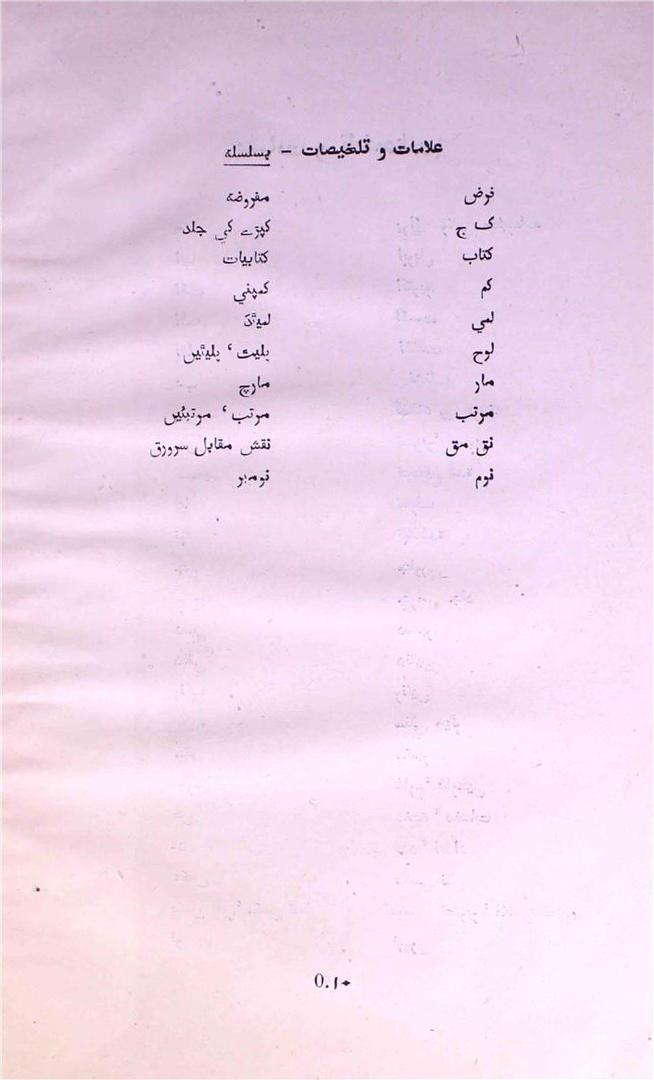 علامات و تلخیصات - بسلسلہ
فرض مفروضہ
ک ج کپڑے کي جلد
کتاب کتابیات
کم کمپني
لمي لمیٹڈ
لوح پلیٹ، پلیٹیں
مار مارچ
مرتب مرتب، مرتبئیں
نق مق نقش مقابل سرورق
نوم نومبر
0.۱۰